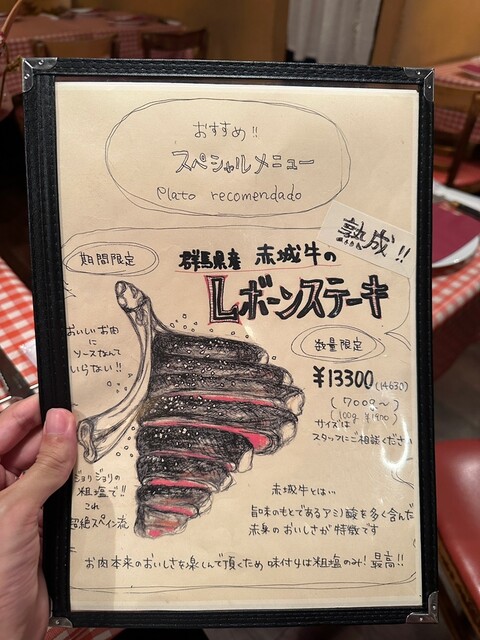 おすすめ!!
スペシャルメニュー
Plato recomendado
熟成!!
期間限定
群馬県産 赤城牛の
Lボーンステーキ
おいしいお肉
に
ソースなんて
いらない!!
数量限定
¥13300(14630)
(700g〜)
(100g ¥1900)
サイズは
スタッフにご相談ください
ジョリジョリの
粗塩で!!
これ
超絶スペイン流
赤城牛とは…
旨味のもとであるアミノ酸を多く含んだ
赤身のおいしさが特徴です
お肉本来のおいしさを楽しんで頂くため味付けは粗塩のみ!最高!!